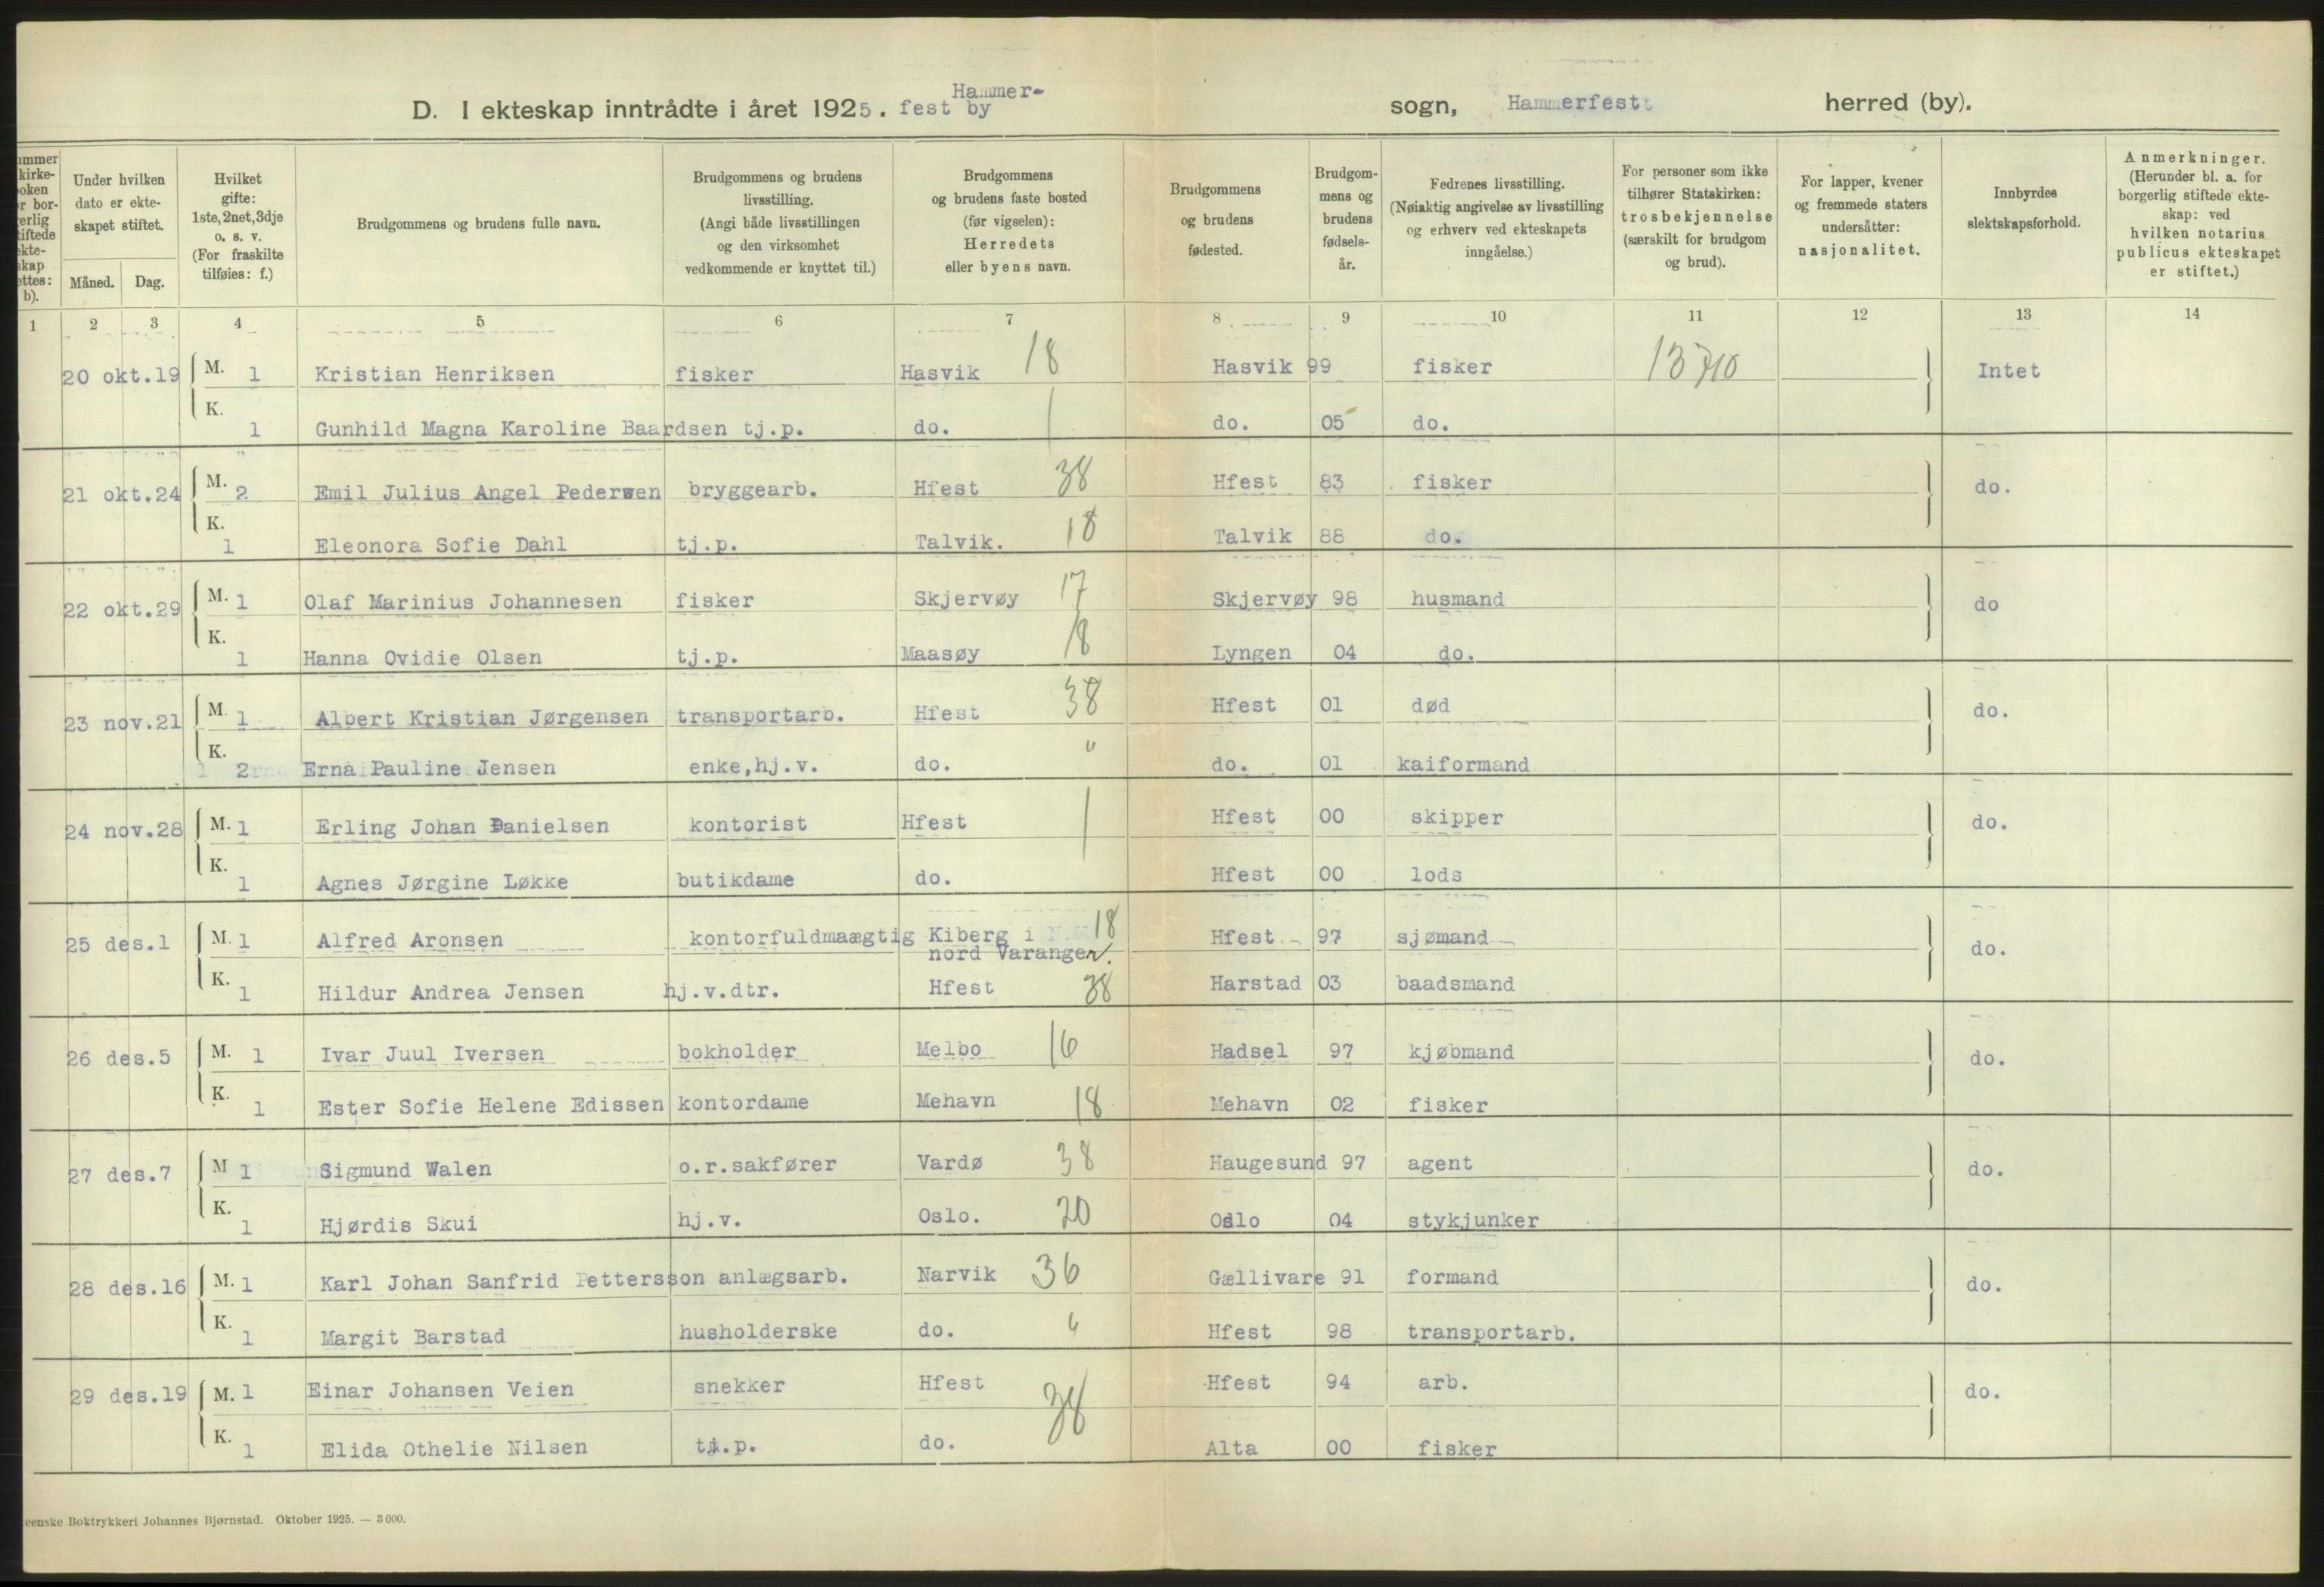 D. I ekteskap inntrådte i året 1925. Hammer-
fest by sogn, Hammerfest herred (by).
ummer
kirke-
oken
r bor-
erlig
tiftede
ekte-
skap
ettes:
b).
Under hvilken
dato er ekte-
skapet stiftet.
Måned. Dag.
Hvilket
gifte:
1ste, 2net, 3dje
o. s. v.
(For fraskilte
tilføies: f.)
Brudgommens og brudens fulle navn.
Brudgommens og brudens
livsstilling.
(Angi både livsstillingen
og den virksomhet
vedkommende er knyttet til.)
Brudgommens
og brudens faste bosted
(før vigselen):
Herredets
eller byens navn.
Brudgommens
og brudens
fødested.
Brudgom-
mens og
brudens
fødsels-
år.
Fedrenes livsstilling.
(Nøiaktig angivelse av livsstilling
og erhverv ved ekteskapets
inngåelse.)
For personer som ikke
tilhører Statskirken:
trosbekjennelse
(særskilt for brudgom
og brud).
For lapper, kvener
og fremmede staters
undersåtter:
nasjonalitet.
Innbyrdes
slektskapsforhold.
Anmerkninger.
(Herunder bl. a. for
borgerlig stiftede ekte-
skap: ved
hvilken notarius
publicus ekteskapet
er stiftet.)
1 2 3 4 5 6 7 8 9 10 11 12 13 14
20 okt.19 M. 1 Kristian Henriksen fisker Hasvik 18 Hasvik 99 fisker Intet
K. 1 Gunhild Magna Karoline Baardsen tj.p. do. do. 05 do.
21 okt.24 M. 2 Emil Julius Angel Pedersen bryggearb. Hfest 38 Hfest 83 fisker do.
K. 1 Eleonora Sofie Dahl tj.p. Talvik. 18 Talvik 88 do.
22 okt.29 M. 1 Olaf Marinius Johannesen fisker Skjervøy 17 Skjervøy 98 husmand do
K. 1 Hanna Ovidie Olsen tj.p. Maasøy 18 Lyngen 04 do.
23 nov.21 M. 1 Albert Kristian Jørgensen transportarb. Hfest 38 Hfest 01 død do.
K. 2 Erna Pauline Jensen enke,hj.v. do. " do. 01 kaiformand
24 nov.28 M. 1 Erling Johan Danielsen kontorist Hfest Hfest 00 skipper do.
K. 1 Agnes Jørgine Løkke butikdame do. Hfest 00 lods
25 des.1 M. 1 Alfred Aronsen kontorfuldmaægtig Kiberg i 18 Hfest 97 sjømand do.
nord Varanger.
K. 1 Hildur Andrea Jensen hj.v.dtr. Hfest 38 Harstad 03 baadsmand
26 des.5 M. 1 Ivar Juul Iversen bokholder Melbo 16 Hadsel 97 kjøbmand do.
K. 1 Ester Sofie Helene Edissen kontordame Mehavn 18 Mehavn 02 fisker
27 des.7 M 1 Sigmund Walen o.r.sakfører Vardø 38 Haugesund 97 agent do.
K. 1 Hjørdis Skui hj.v. Oslo. 20 Oslo 04 stykjunker
28 des.16 M. 1 Karl Johan Sanfrid Pettersson anlægsarb. Narvik 36 Gællivare 91 formand do.
K. 1 Margit Barstad husholderske do. " Hfest 98 transportarb.
29 des.19 M. 1 Einar Johansen Veien snekker Hfest 38 Hfest 94 arb. do.
K. 1 Elida Othelie Nilsen tj.p. do. Alta 00 fisker
eenske Boktrykkeri Johannes Bjørnstad. Oktober 1925. — 3000.